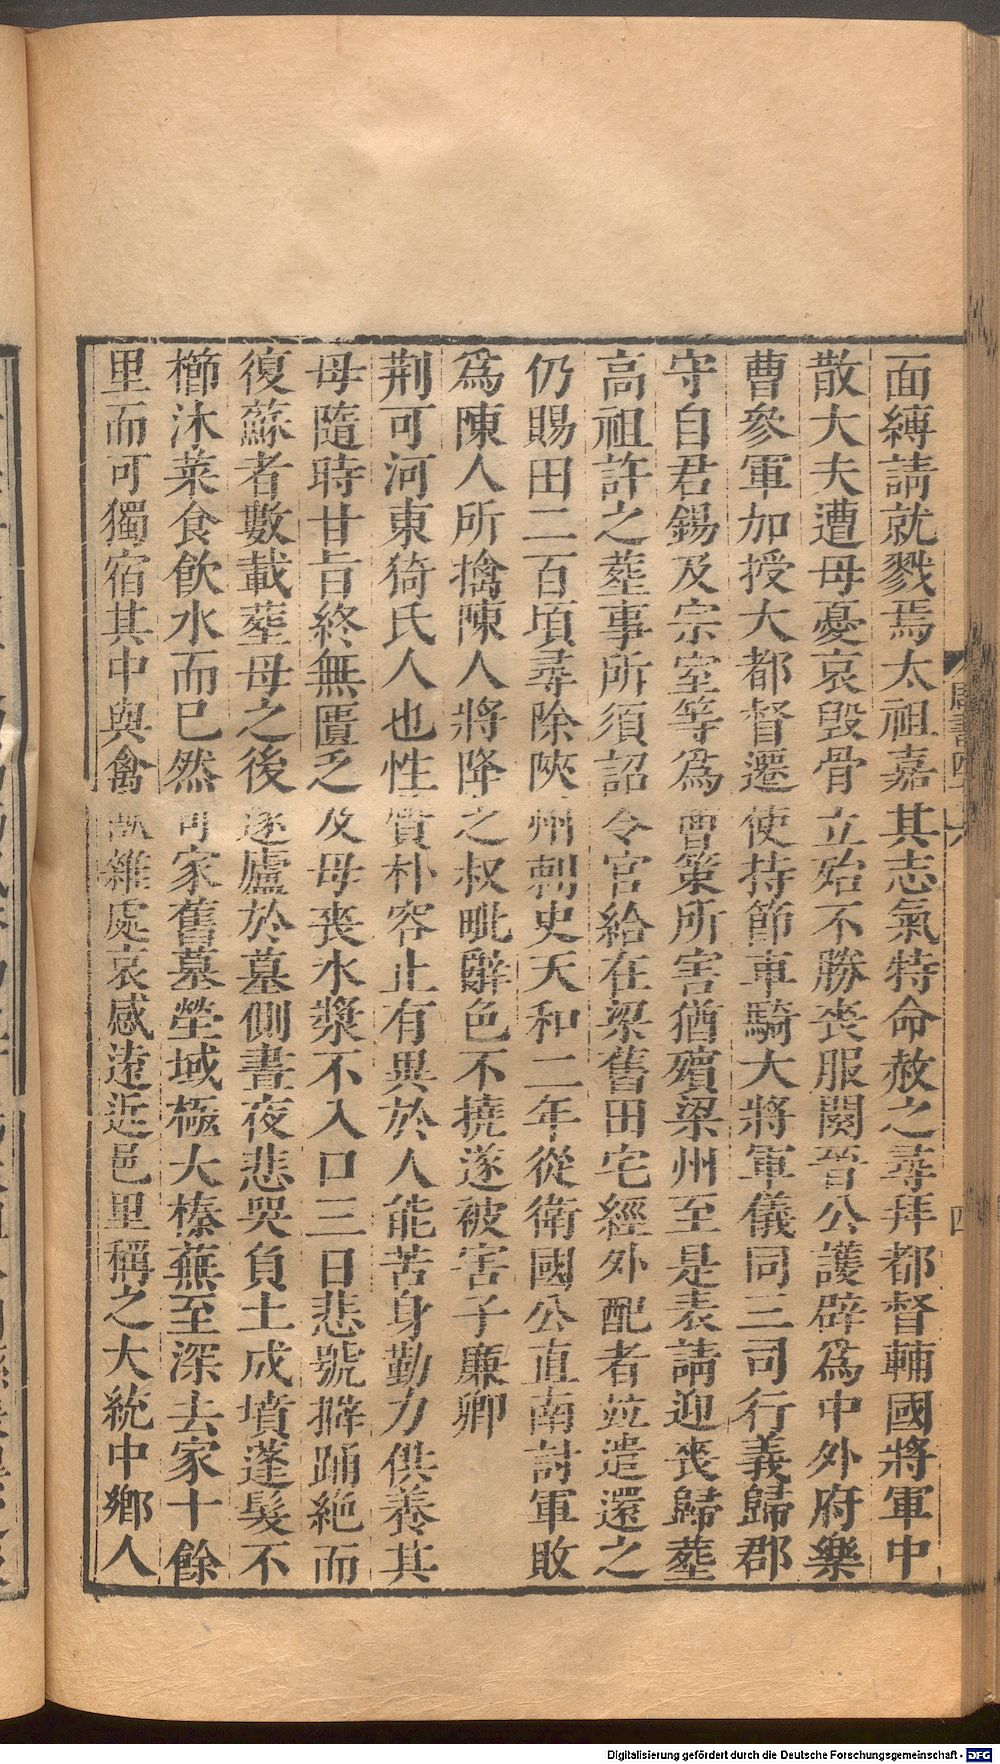 面縛請就戮焉太祖嘉其志氣特命赦之尋拜都督輔國將軍中
散大夫遭母憂哀毀骨立殆不勝喪服闋晉公護辟爲中外府樂
曹參軍加授大都督遷使持節車騎大將軍儀同三司行義歸郡
守自君錫及宗室等爲曹策所害猶殯梁州至是表請迎喪歸葬
高祖許之葬事所須詔令官給在梁舊田宅經外配者並遣還之
仍賜田二百頃尋除陝州刺史天和二年從衛國公直南討軍敗
爲陳人所擒陳人將降之叔毗辭色不撓遂被害子廉卿
荆可河東猗氏人也性質朴容止有異於人能苦身勤力供養其
母隨時甘旨終無匱乏及母喪水漿不入口三日悲號擗踊絕而
復蘇者數載葬母之後遂廬於墓側晝夜悲哭負土成墳蓬髮不
櫛沐菜食飲水而已然可家舊墓塋域極大榛蕪至深去家十餘
里而可獨宿其中與禽獸雜處哀感遠近邑里稱之大統中鄉人
周書四十六
四
Digitalisierung gefördert durch die Deutsche Forschungsgemeinschaft - DFG